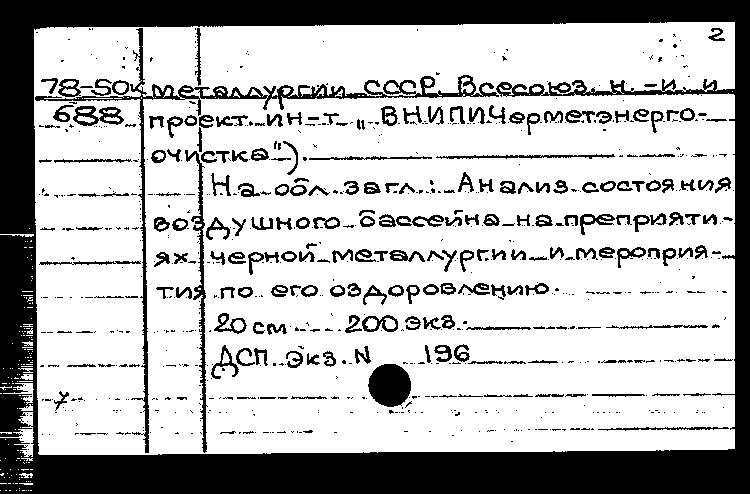 2
78-50к металлургии СССР. Всесоюз. н.-и. и
688 проект. ин-т „ВНИПИЧерметэнерго-
очистка").
На обл. загл.: Анализ состояния
воздушного бассейна на преприяти-
ях черной металлургии и мероприя-
тия по его оздоровлению.
20 см 200 экз.
ДСП Экз. N 196
7